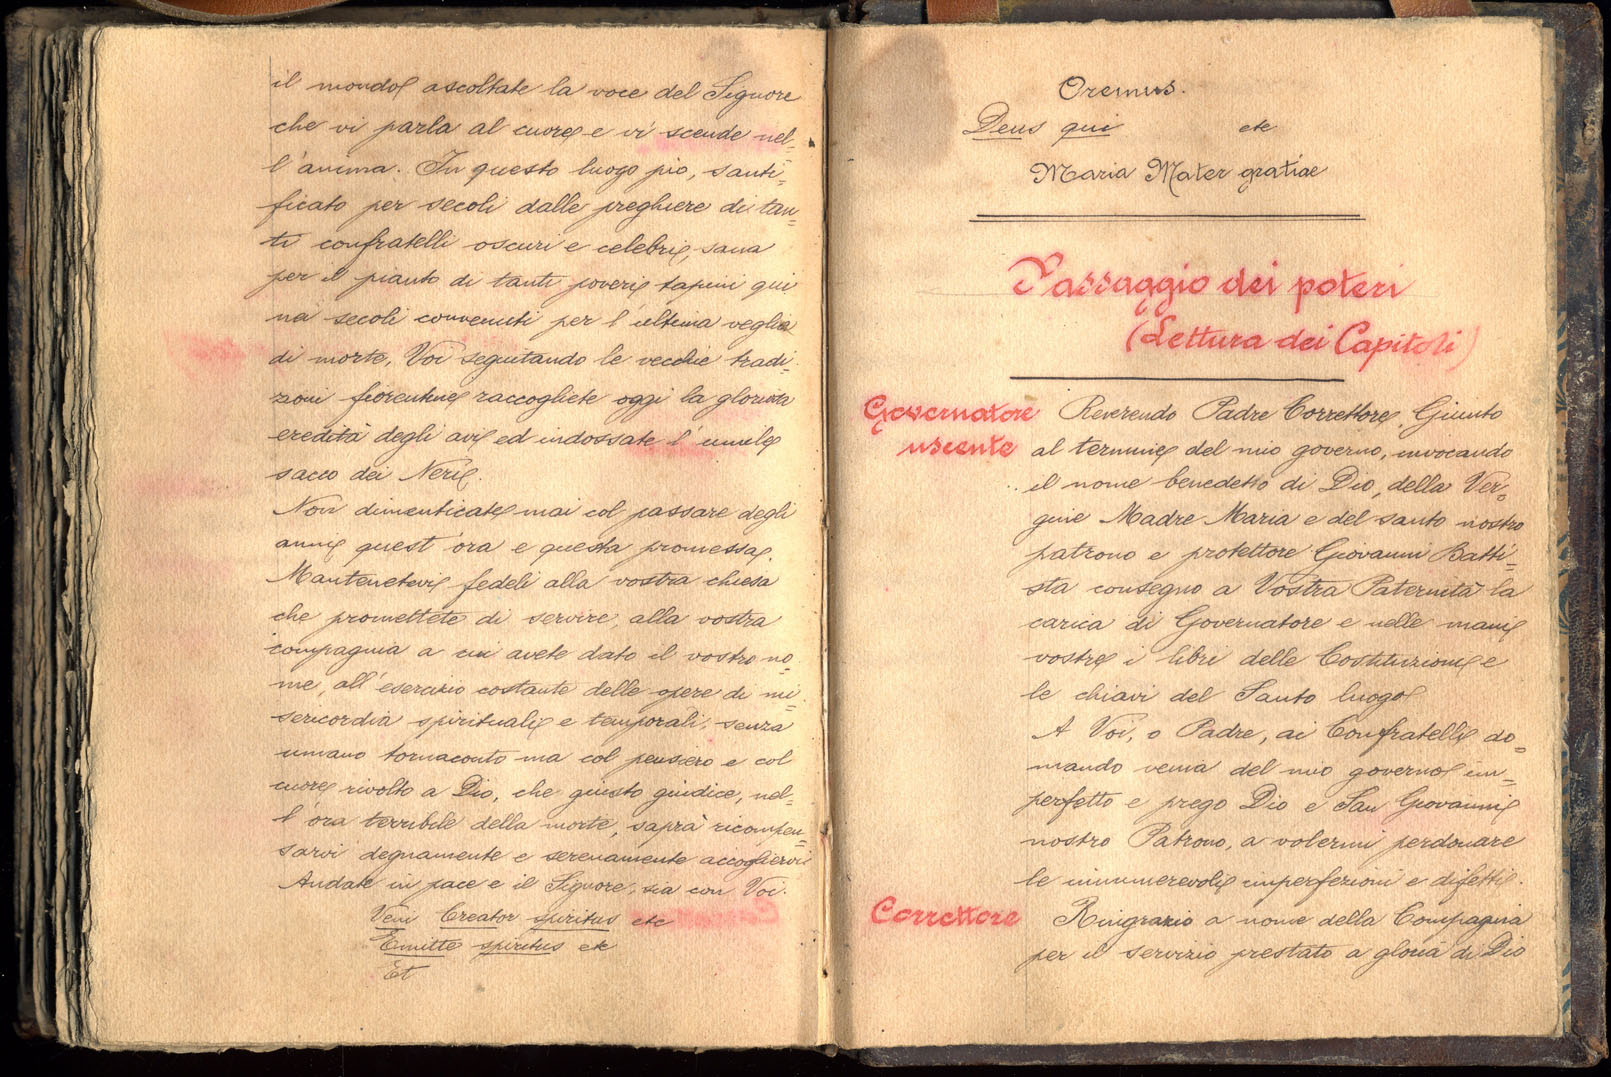 il mondo, ascoltate la voce del Signore
che vi parla al cuore e vi scende nel=
l'anima. In questo luogo pio, santi=
ficato per secoli dalle preghiere di tan=
ti confratelli oscuri e celebri,
per il pianto di tanti poveri tapini qui
secoli convenuti per l'ultima veglia
di morte, Voi seguitando le vecchie tradi=
zioni fiorentine raccogliete oggi la gloriosa
eredità degli avi ed indossate l'umile
sacco dei Neri.
Non dimenticate mai col passare degli
anni quest'ora e questa promessa.
Mantenetevi fedeli alla vostra chiesa
che promettete di servire, alla vostra
compagnia a cui avete dato il vostro no=
me, all'esercizio costante delle opere di mi=
sericordia spirituali e temporali, senza
umano tornaconto ma col pensiero e col
cuore rivolto a Dio, che giusto giudice, nel=
l'ora terribile della morte, saprà ricompen=
sarvi degnamente e serenamente accogliervi
Andate in pace e il Signore, sia con Voi.
Veni Creator spiritus etc
Emitte spiritus etc
Et
Oremus.
Deus qui etc
Maria Mater gratiae
Passaggio dei poteri
(Lettura dei Capitoli)
Governatore uscente
Reverendo Padre Correttore, Giunto
al termine del mio governo, invocando
il nome benedetto di Dio, della Ver=
gine Madre Maria e del santo nostro
patrono e protettore Giovanni Batti=
sta consegno a Vostra Paternità la
carica di Governatore e nelle mani
vostre i libri delle Costituzioni e
le chiavi del Santo luogo
A Voi, o Padre, ai Confratelli do=
mando venia del mio governo im=
perfetto e prego Dio e San Giovanni
nostro Patrono, a volermi perdonare
le innumerevoli imperfezioni e difetti.
Correttore
Ringrazio a nome della Compagnia
per il servizio prestato a gloria di Dio